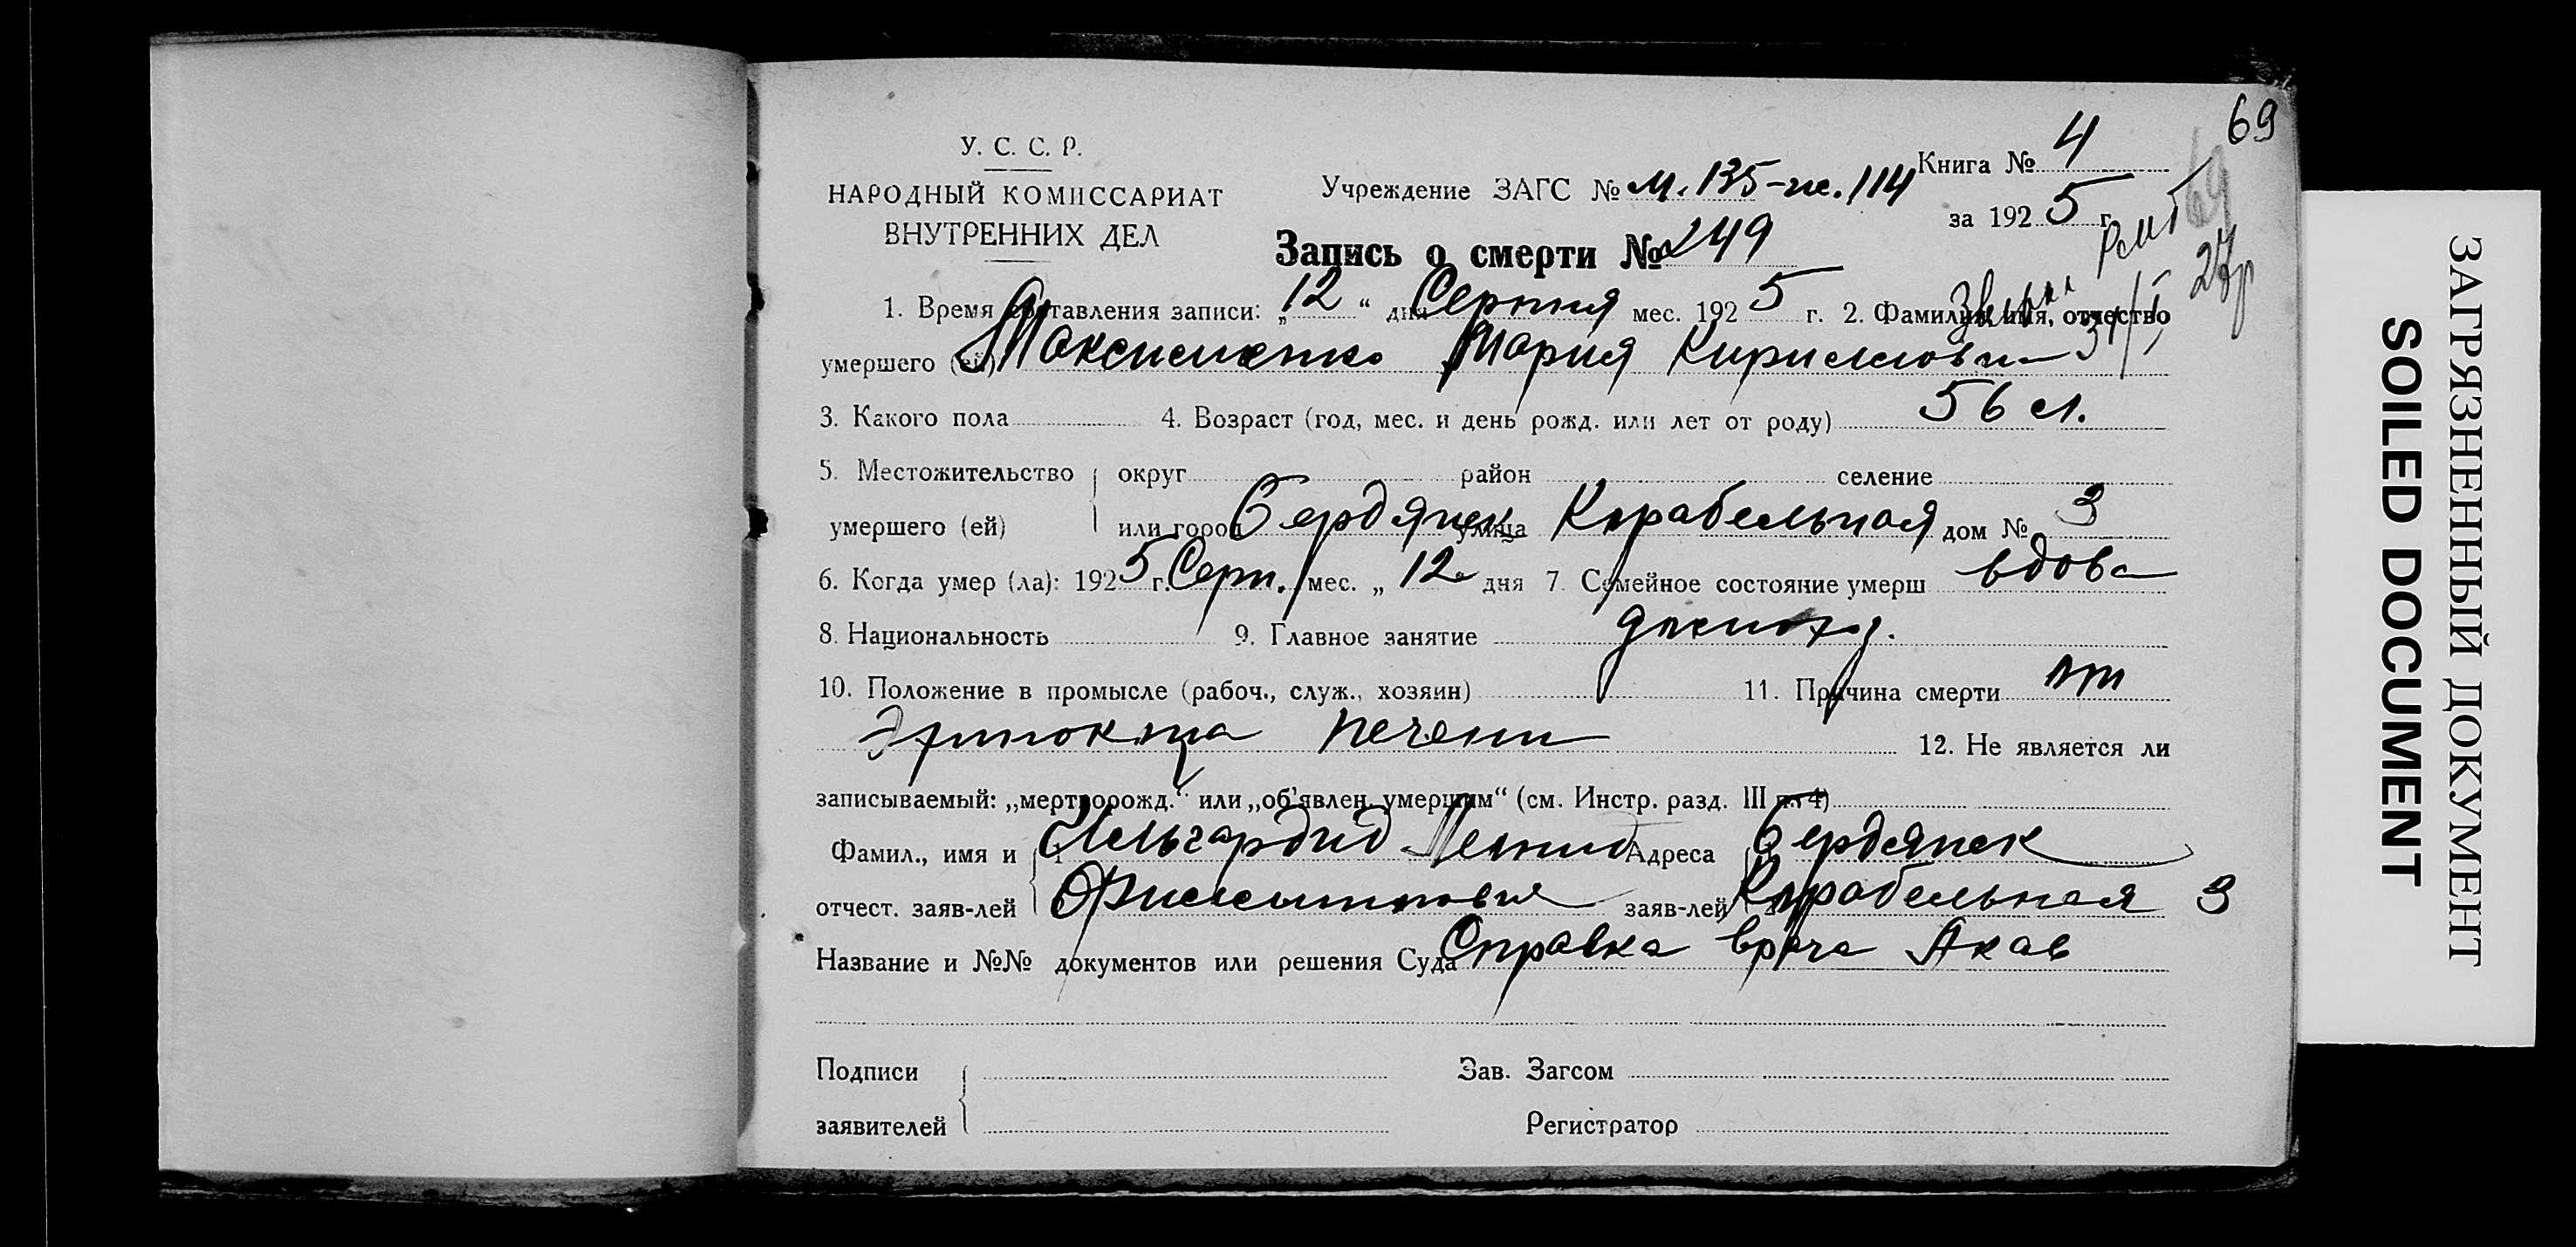 69
У. С. С. Р.
НАРОДНЫЙ КОМИССАРИАТ
ВНУТРЕННИХ ДЕЛ
Учреждение ЗАГС № м. 135-ж. 114
Книга № 4
за 1925 г.
Запись о смерти № 249
1. Время составления записи: „12“ дня Серпня мес. 1925 г. 2. Фамилия, имя, отчество
умершего (ей) Максименко Мария Кирилловна
3. Какого пола 4. Возраст (год, мес. и день рожд. или лет от роду) 56 л.
5. Местожительство округ район селение
умершего (ей) или город Бердянск улица Корабельная дом № 3
6. Когда умер (ла): 1925 г. Серп. мес. „12 дня 7. Семейное состояние умерш вдова
8. Национальность 9. Главное занятие
10. Положение в промысле (рабоч., служ., хозяин) 11. Причина смерти от
печени 12. Не является ли
записываемый: „мертворожд.“ или „об’явлен. умершим“ (см. Инстр. разд. III п. 4)
Фамил., имя и Леонид Адреса Бердянск
отчест. заяв-лей заяв-лей Корабельная 3
Название и №№ документов или решения Суда Справка врача
Подписи Зав. Загсом
заявителей Регистратор
ЗАГРЯЗНЕННЫЙ ДОКУМЕНТ
SOILED DOCUMENT